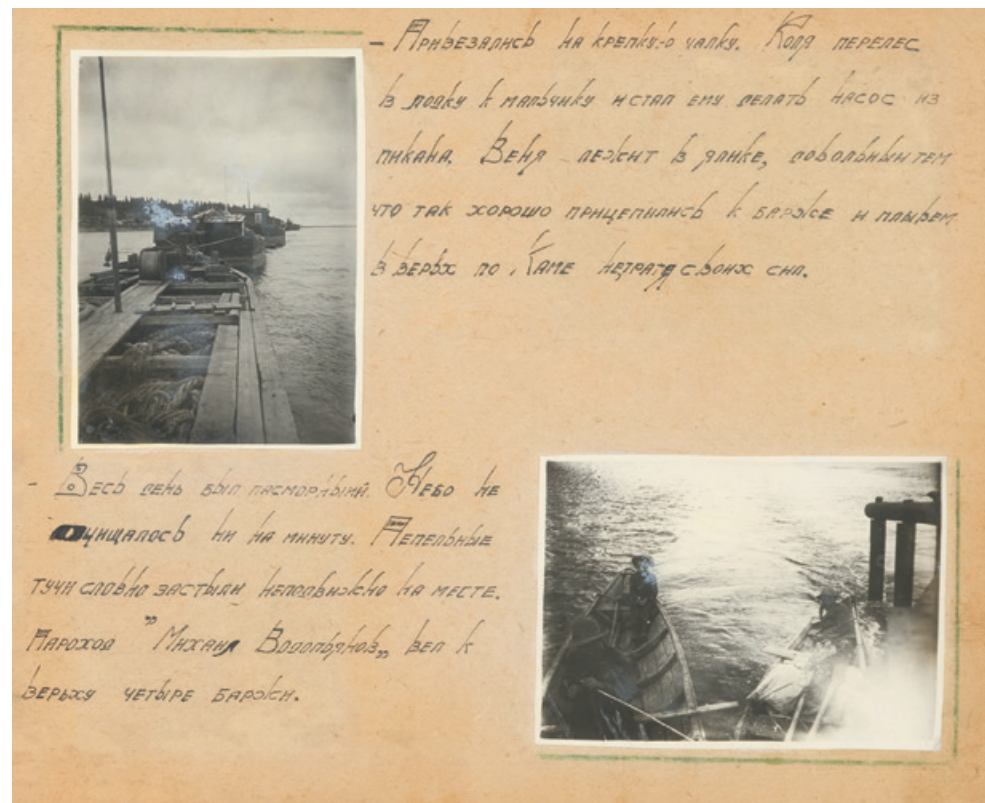 – Привезались на крепкую чалку. Коля перелес
в лодку к мальчику и стал ему делать насос из
пикана. Веня лежит в ялике, довольный тем
что так хорошо прицепились к барже и плывем
в верьх по Каме нетратя своих сил.
- Весь день был пасморный. Небо не
очищалось ни на минуту. Пепельные
тучи словно застыли неподвижно на месте.
Пароход "Михаил Водопьянов„ вел к
верьху четыре баржи.